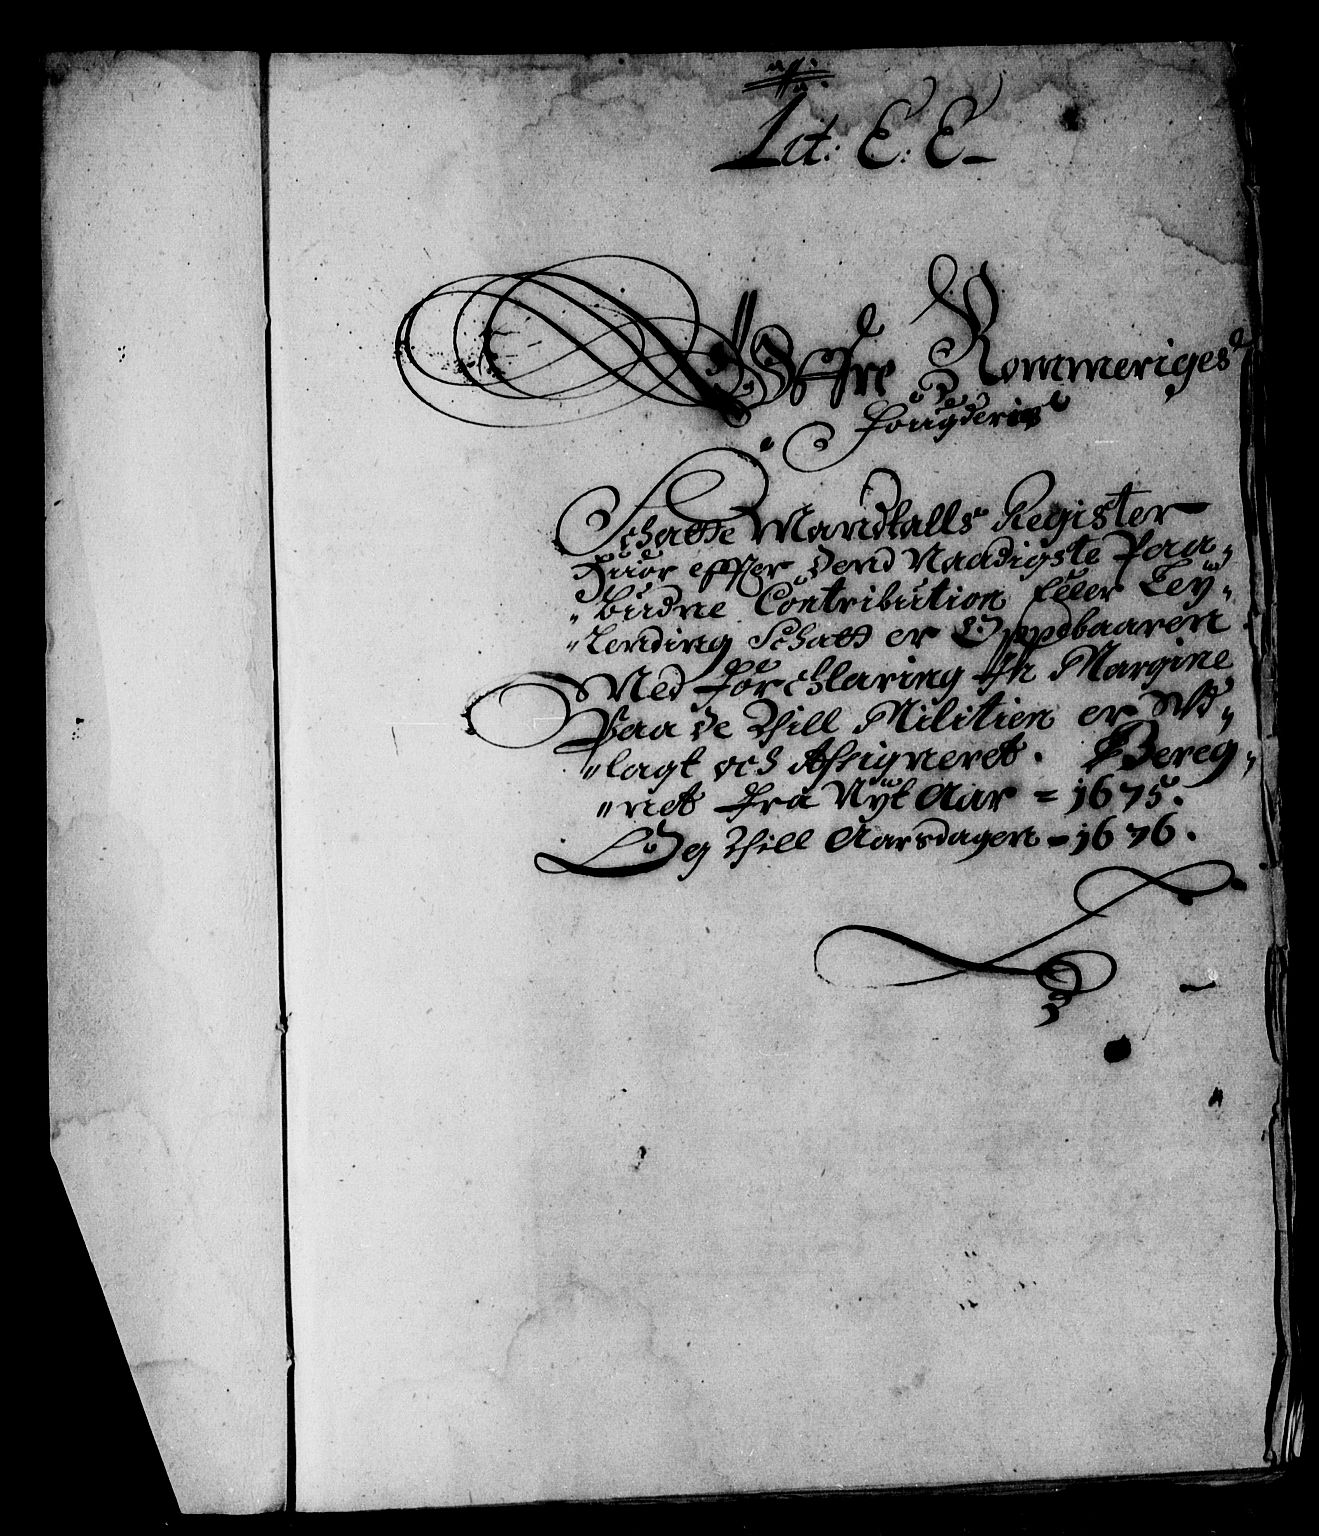 Lit: E: E
Øffre Rommeriges
fougderies
Schatte Mandtalls Register
Huor effter dend Naadigste Paa-
budne Contribution Eller Ley-
lending Schatt er Oppebaaren
Med forchlaring In Margine
Paa de Thill Militien er Ud-
lagt och Assigneret. Bereg-
net fra Nyt Aar = 1675.
Og Thill Aarsdagen = 1676.